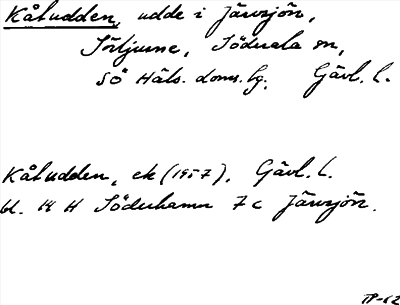 Kåtudden, udde i Järvsjön,
Sörljusne, Söderala sn,
SÖ Häls. doms. lg. Gävl. l.
Kåtudden, ek (1957), Gävl. l.
bl. 14 H Söderhamn 7 c Järvsjön.
TP-62